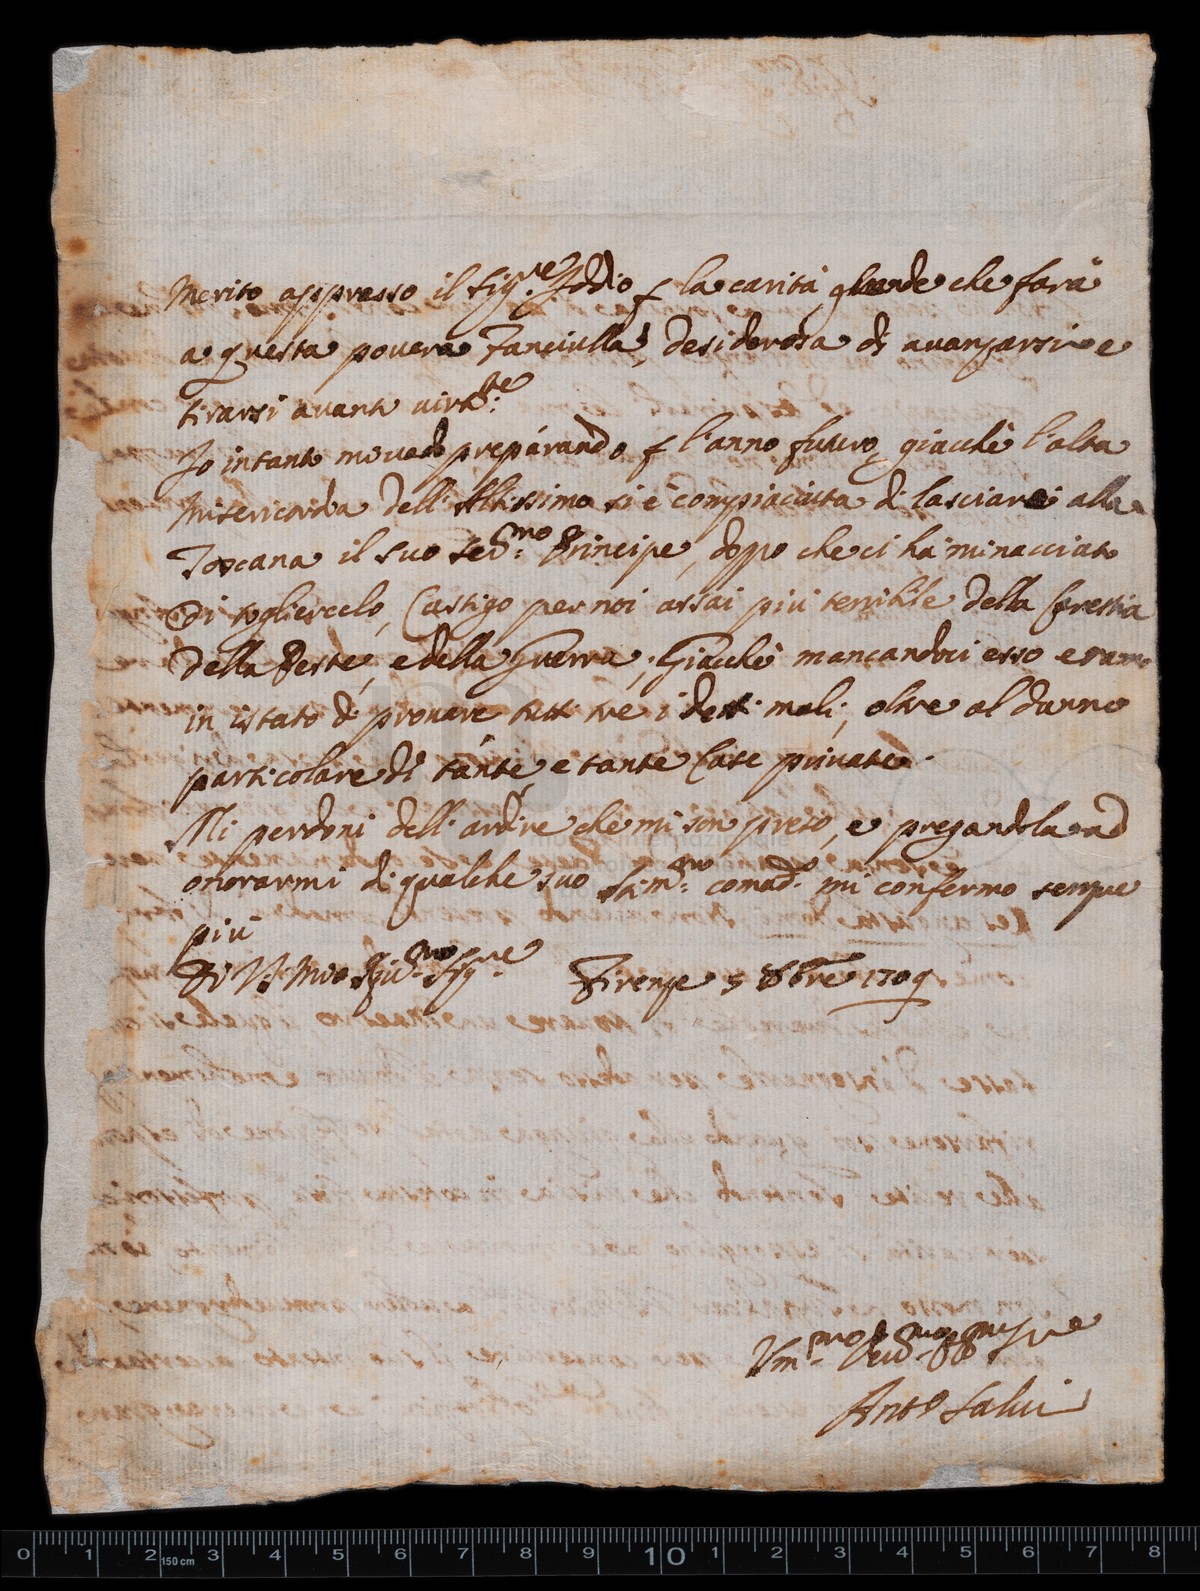 Merito appresso il Sig.re Iddio p la carità grande che farà
a questa povera Fanciulla, desiderosa di avanzarsi e
tirarsi avanti virt.te
Io intanto mi vado preparando p l'anno futuro, giacchè l'alta
Misericordia dell'Altissimo si è compiaciuta di lasciarci alla
Toscana il suo Ser.mo Principe, doppo che ci hà minacciato
di togliercelo, Castigo per noi assai più terribile della Carestia
della Peste, e della Guerra; Giacchè mancandoci esso eramo
in istato di provare tutti tre i detti mali, oltre al danno
particolare di tante, e tante Case private.
Mi perdoni dell'ardire che mi son preso, e pregandola ad
onorarmi di qualche suo stim.mo comad.o mi confermo sempre
più
Di V.S. Mio Sig.re Firenze 5 8bre 1709
Um.mo Dev.mo Ser.re
Ant.o Salvi